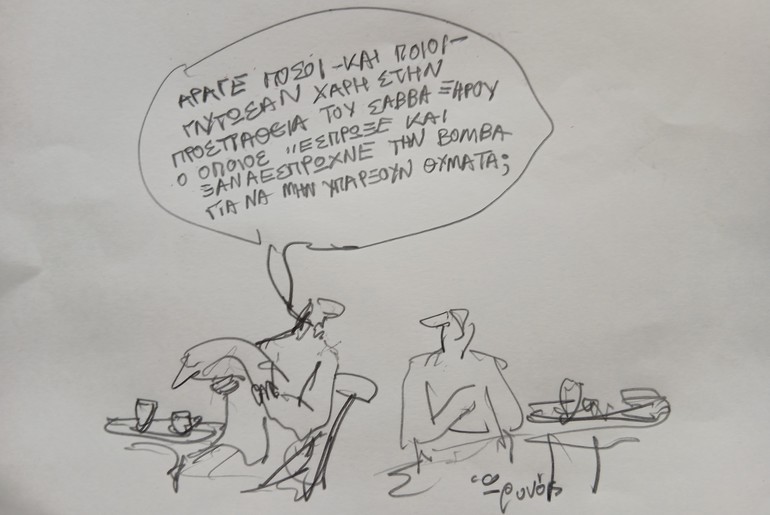 ΑΡΑΓΕ ΠΟΣΟΙ -ΚΑΙ ΠΟΙΟΙ-
ΓΛΥΤΩΣΑΝ ΧΑΡΗ ΣΤΗΝ
ΠΡΟΣΠΑΘΕΙΑ ΤΟΥ ΣΑΒΒΑ ΞΗΡΟΥ
Ο ΟΠΟΙΟΣ "ΕΣΠΡΩΞΕ ΚΑΙ
ΞΑΝΑΕΣΠΡΩΧΝΕ ΤΗΝ ΒΟΜΒΑ
ΓΙΑ ΝΑ ΜΗΝ ΥΠΑΡΞΟΥΝ ΘΥΜΑΤΑ;